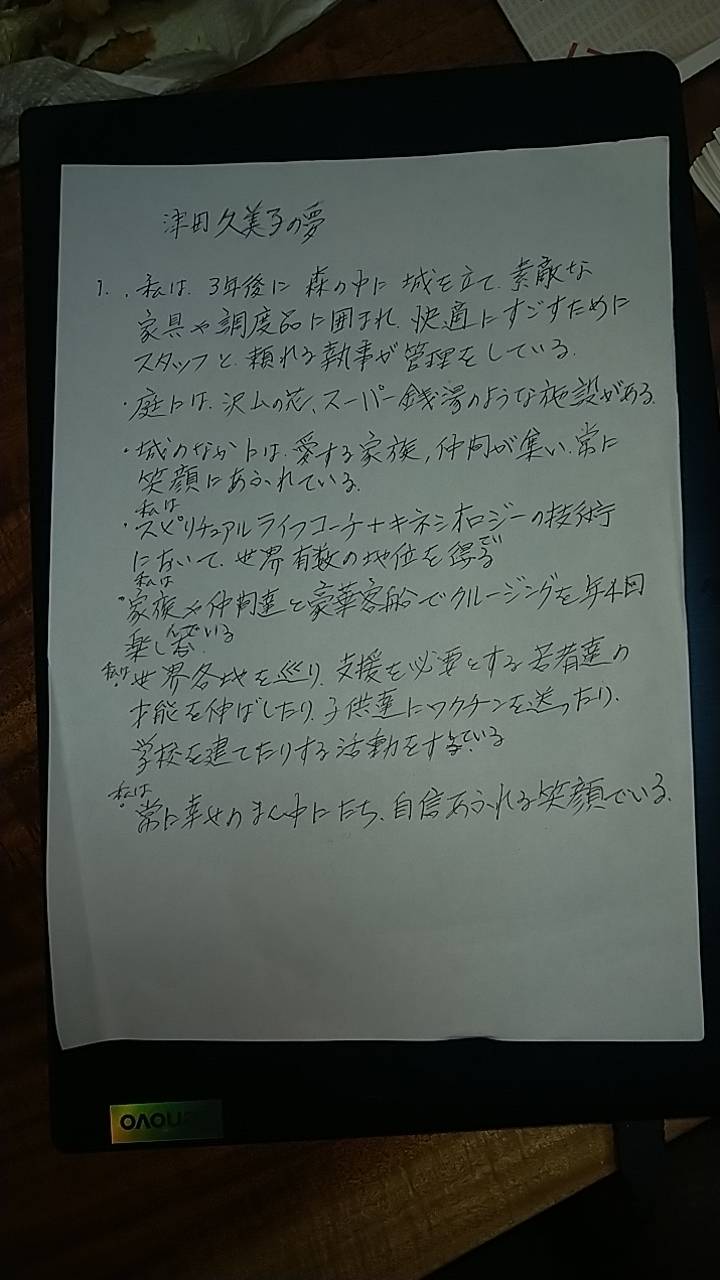 津田久美子の夢
1. 私は、3年後に 森の中に 城を立て、素敵な
家具や調度品に囲まれ、快適にすごすために
スタッフと、頼れる執事が管理をしている。
・庭には、沢山の花、スーパー銭湯のような施設がある。
・城のなかには、愛する家族,仲間が集い、常に
笑顔にあふれている。
私は
・スピリチュアルライフコーチ+キネシオロジーの技術
において、世界有数の地位を得
私は
・家族や仲間達と豪華客船でクルージングを年4回
楽しんでいる
私は
・世界各地を巡り、支援を必要とする若者達の
才能を伸ばしたり、子供達にワクチンを送ったり、
学校を建てたりする活動をしている
私は
・常に幸せのまん中にたち、自信あふれる笑顔でいる。
lenovo